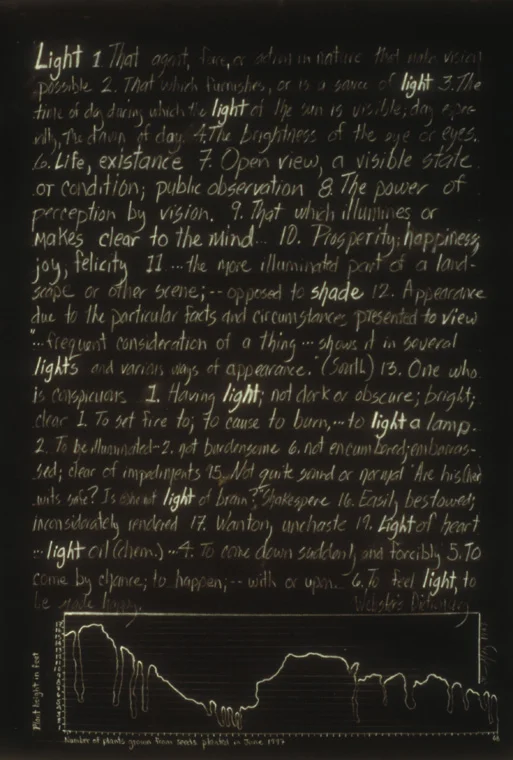 Light 1 That agent, force, or action in nature that make vision
possible 2. That which furnishes, or is a source of light 3. The
time of day during which the light of the sun is visible; day espec-
ially, The dawn of day. 4. The brightness of the eye or eyes.
6. Life, existance 7. Open view, a visible state
or condition; public observation 8. The power of
perception by vision. 9. That which illumines or
makes clear to the mind... 10. Prosperity; happiness,
joy, felicity 11 ...the more illuminated part of a land-
scape or other scene; -- opposed to shade 12. Appearance
due to the particular facts and circumstances presented to view
"...frequent consideration of a thing ... shows it in several
lights and various ways of appearance." (South) 13. One who
is conspicuous 1. Having light; not dark or obscure; bright;
clear 1. To set fire to; to cause to burn, ... to light a lamp.
2. To be illuminated-2. not burdensome 6. not encumbered; embarras-
sed; clear of impediments 15. Not quite sound or normal "Are his
wits safe? Is he not light of brain?" Shakespere 16. Easily bestowed;
inconsiderately rendered 17. Wanton, unchaste 19. Light of heart
... light oil (chem.) ...4. To come down suddenly and forcibly 5. To
come by chance; to happen; -- with or upon... 6. To feel light, to
be made happy. Webster's Dictionary
Plant height in feet
Number of plants grown from seeds planted in June 1997